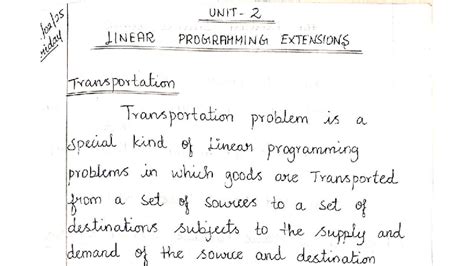 UNIT - 2
LINEAR PROGRAMMING EXTENSIONS
Transportation
Transportation problem is a
special kind of Linear programming
problems in which goods are Transported
from a set of sources to a set of
destinations subjects to the supply and
demand of the source and destination